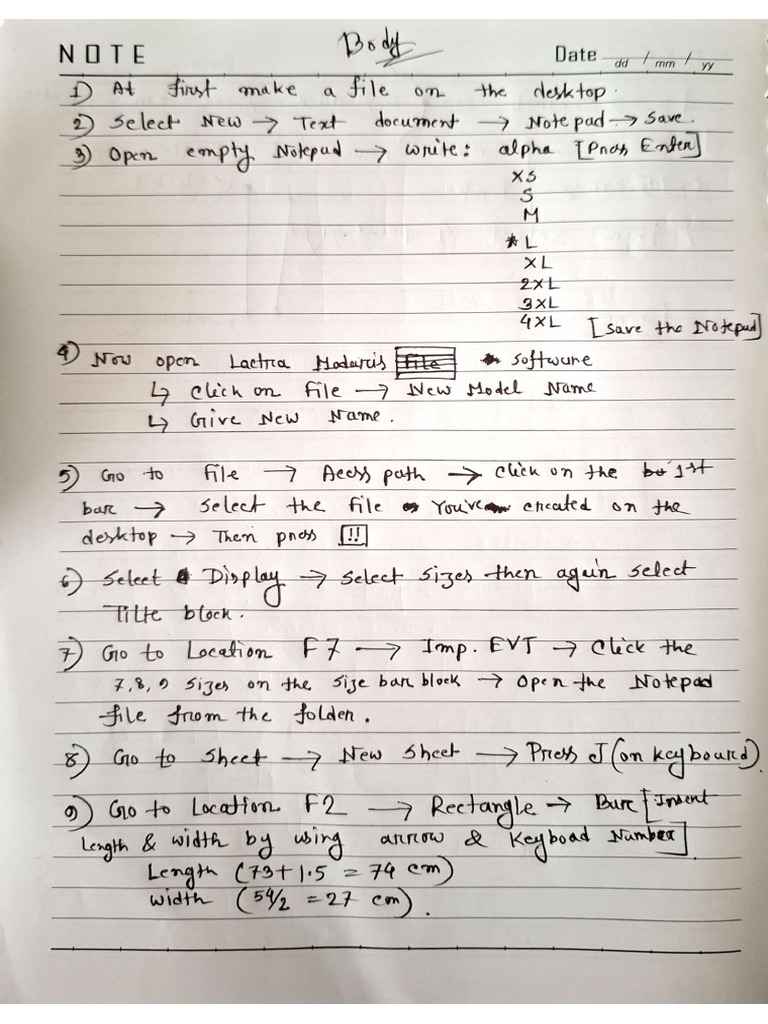 NOTE Body Date dd / mm / yy
1) At first make a file on the desktop.
2) Select New → Text document → Note pad → Save.
3) Open empty Notepad → write: alpha [Press Enter]
XS
S
M
* L
XL
2XL
3XL
4XL [Save the Notepad]
4) Now open Lectra Modaris software
↳ Click on file → New Model Name
↳ Give New Name.
5) Go to file → Acess path → Click on the 1st
bar → Select the file You've created on the
desktop → Then press !!
6) Select Display → Select sizes then again select
Tilte block.
7) Go to Location F7 → Imp. EVT → Click the
7,8,9 sizes on the size bar block → Open the Notepad
file from the folder.
8) Go to Sheet → New Sheet → Press J (on keyboard).
9) Go to Location F2 → Rectangle → Bare [Insert
Length & width by using arrow & Keyboad Number]
Length (73+1.5 = 74 cm)
width (54/2 = 27 cm).